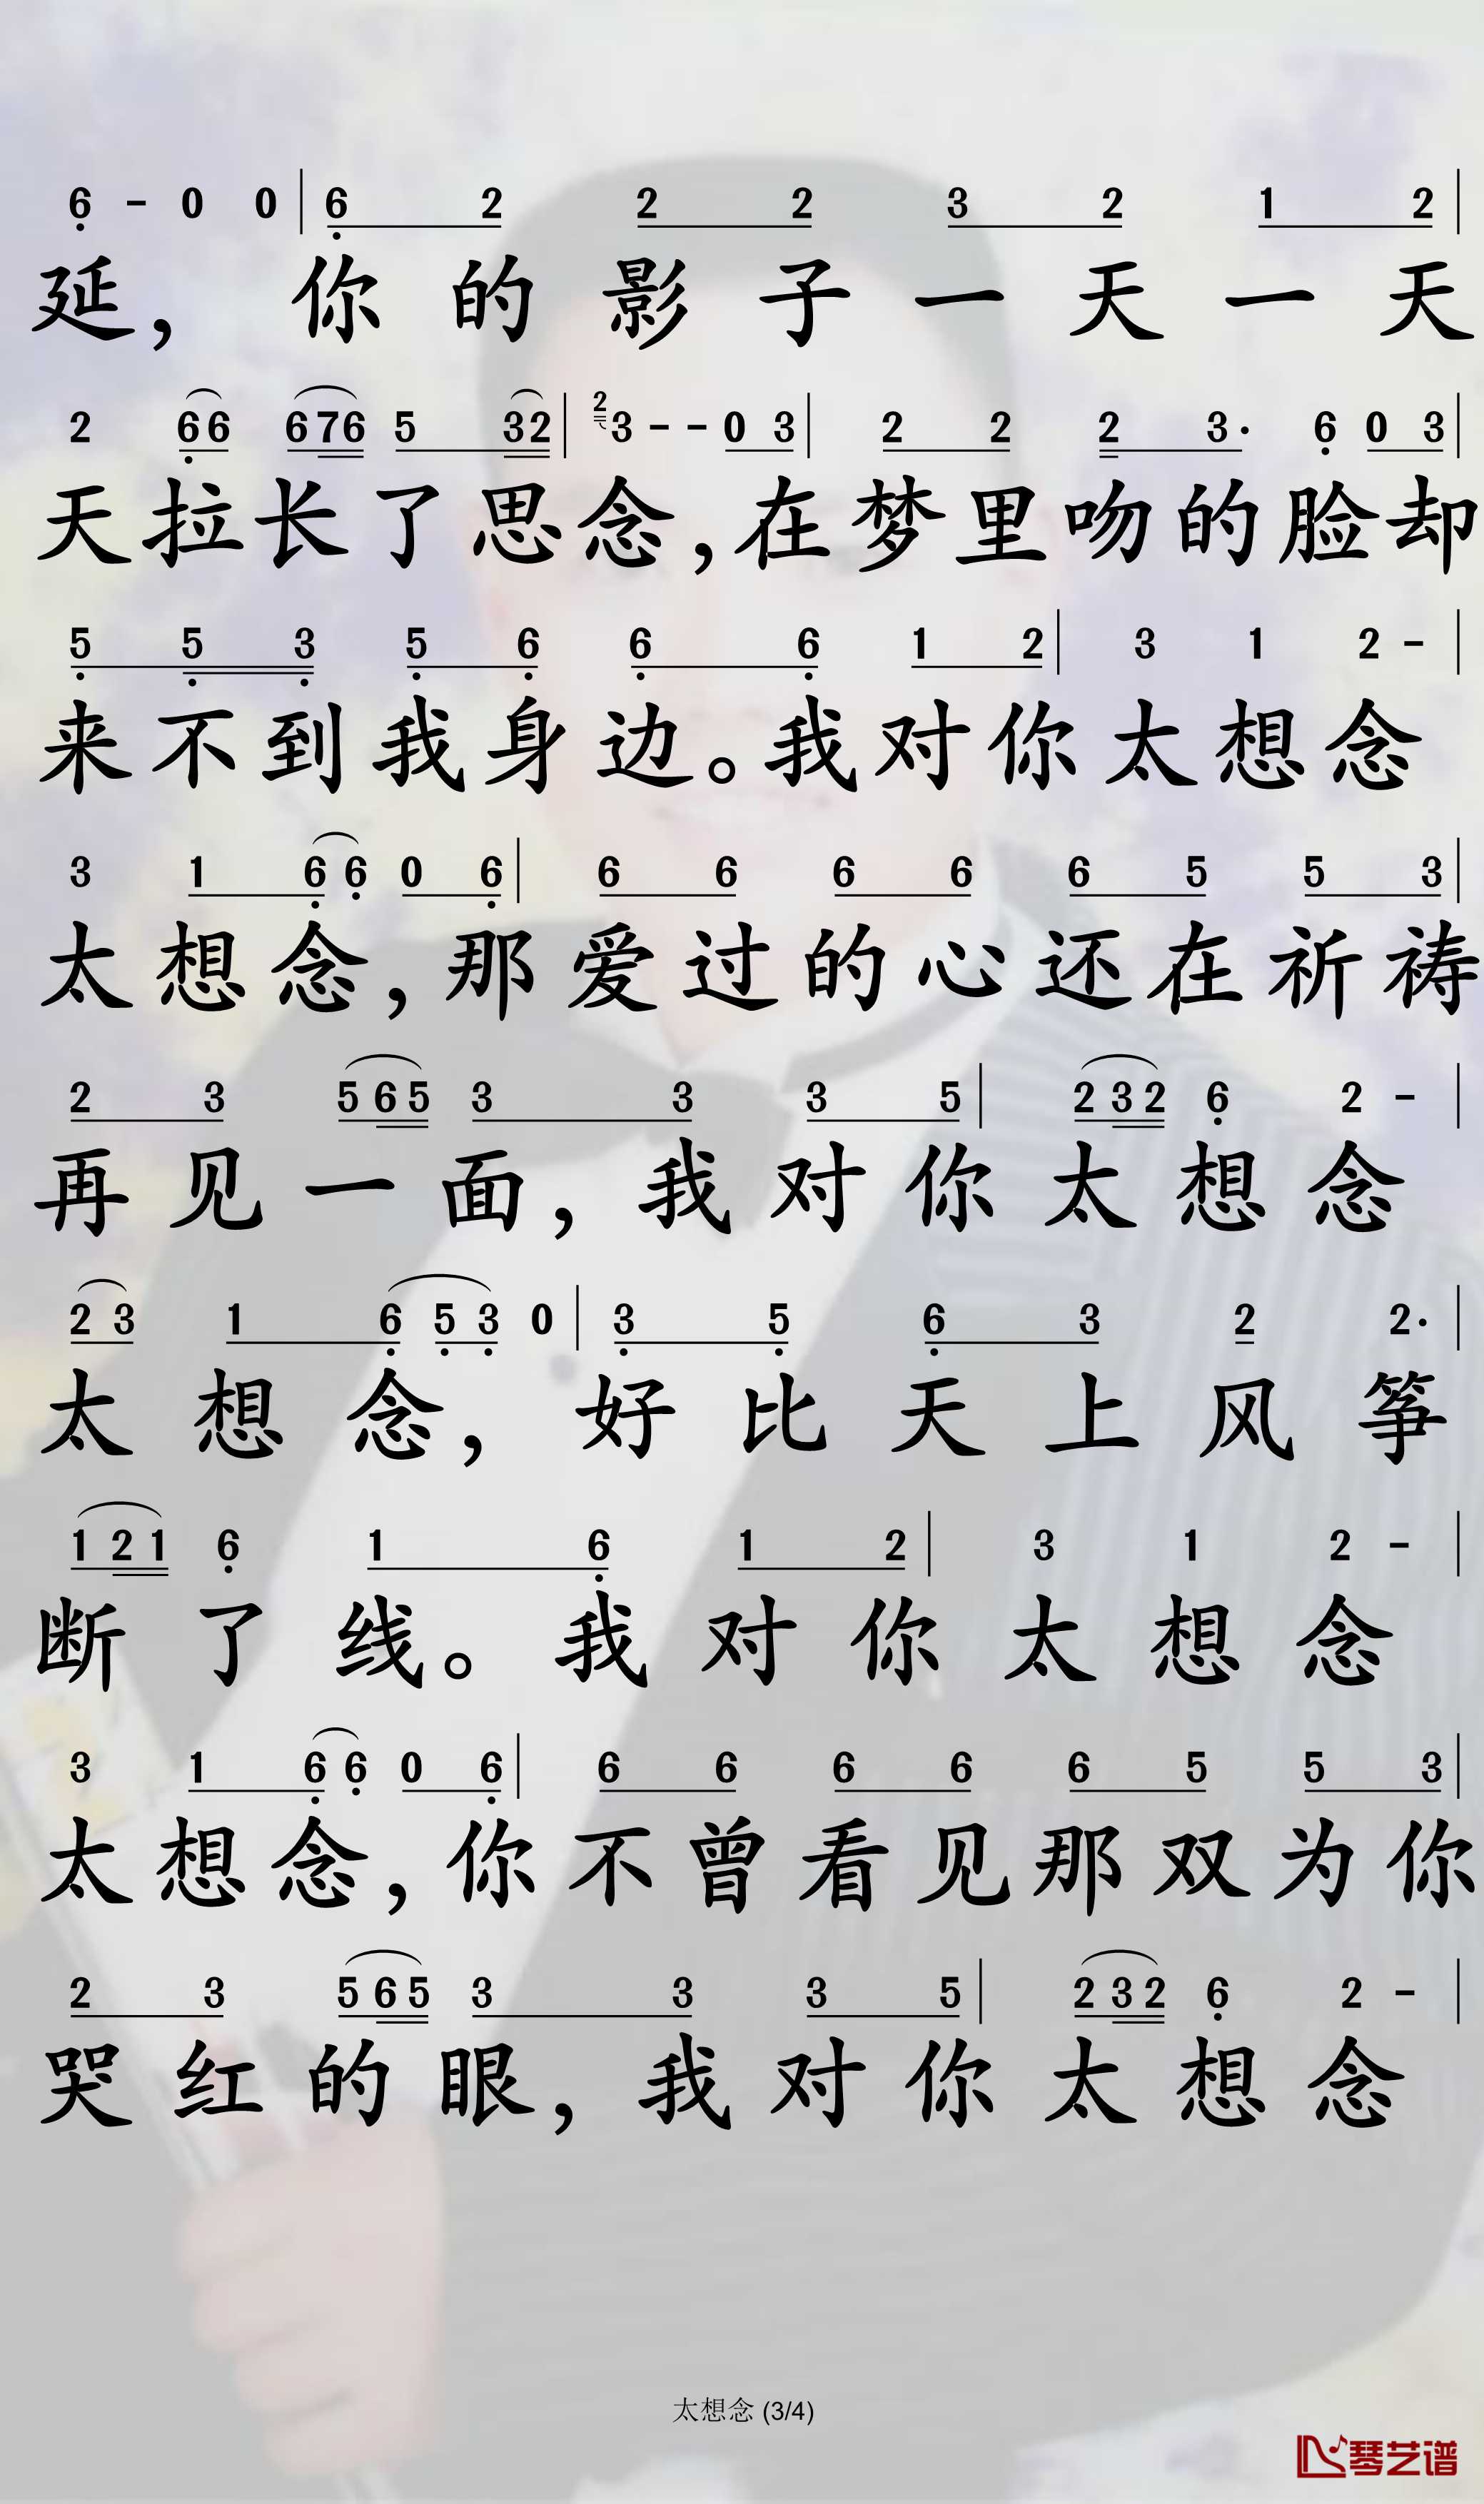 6 - 0 0 | 6 2 2 2 3 2 1 2 |
延, 你的影子一天一天
2 6 6 6 7 6 5 3 2 | 2 3 - - 0 3 | 2 2 2 3· 6 0 3 |
天拉长了思念,在梦里吻的脸却
5 5 3 5 6 6 6 1 2 | 3 1 2 - |
来不到我身边。我对你太想念
3 1 6 6 0 6 | 6 6 6 6 6 5 5 3 |
太想念,那爱过的心还在祈祷
2 3 5 6 5 3 3 3 5 | 2 3 2 6 2 - |
再见一面,我对你太想念
2 3 1 6 5 3 0 | 3 5 6 3 2 2· |
太想念,好比天上风筝
1 2 1 6 1 6 1 2 | 3 1 2 - |
断了线。我对你太想念
3 1 6 6 0 6 | 6 6 6 6 6 5 5 3 |
太想念,你不曾看见那双为你
2 3 5 6 5 3 3 3 5 | 2 3 2 6 2 - |
哭红的眼,我对你太想念
太想念 (3/4)
琴艺谱